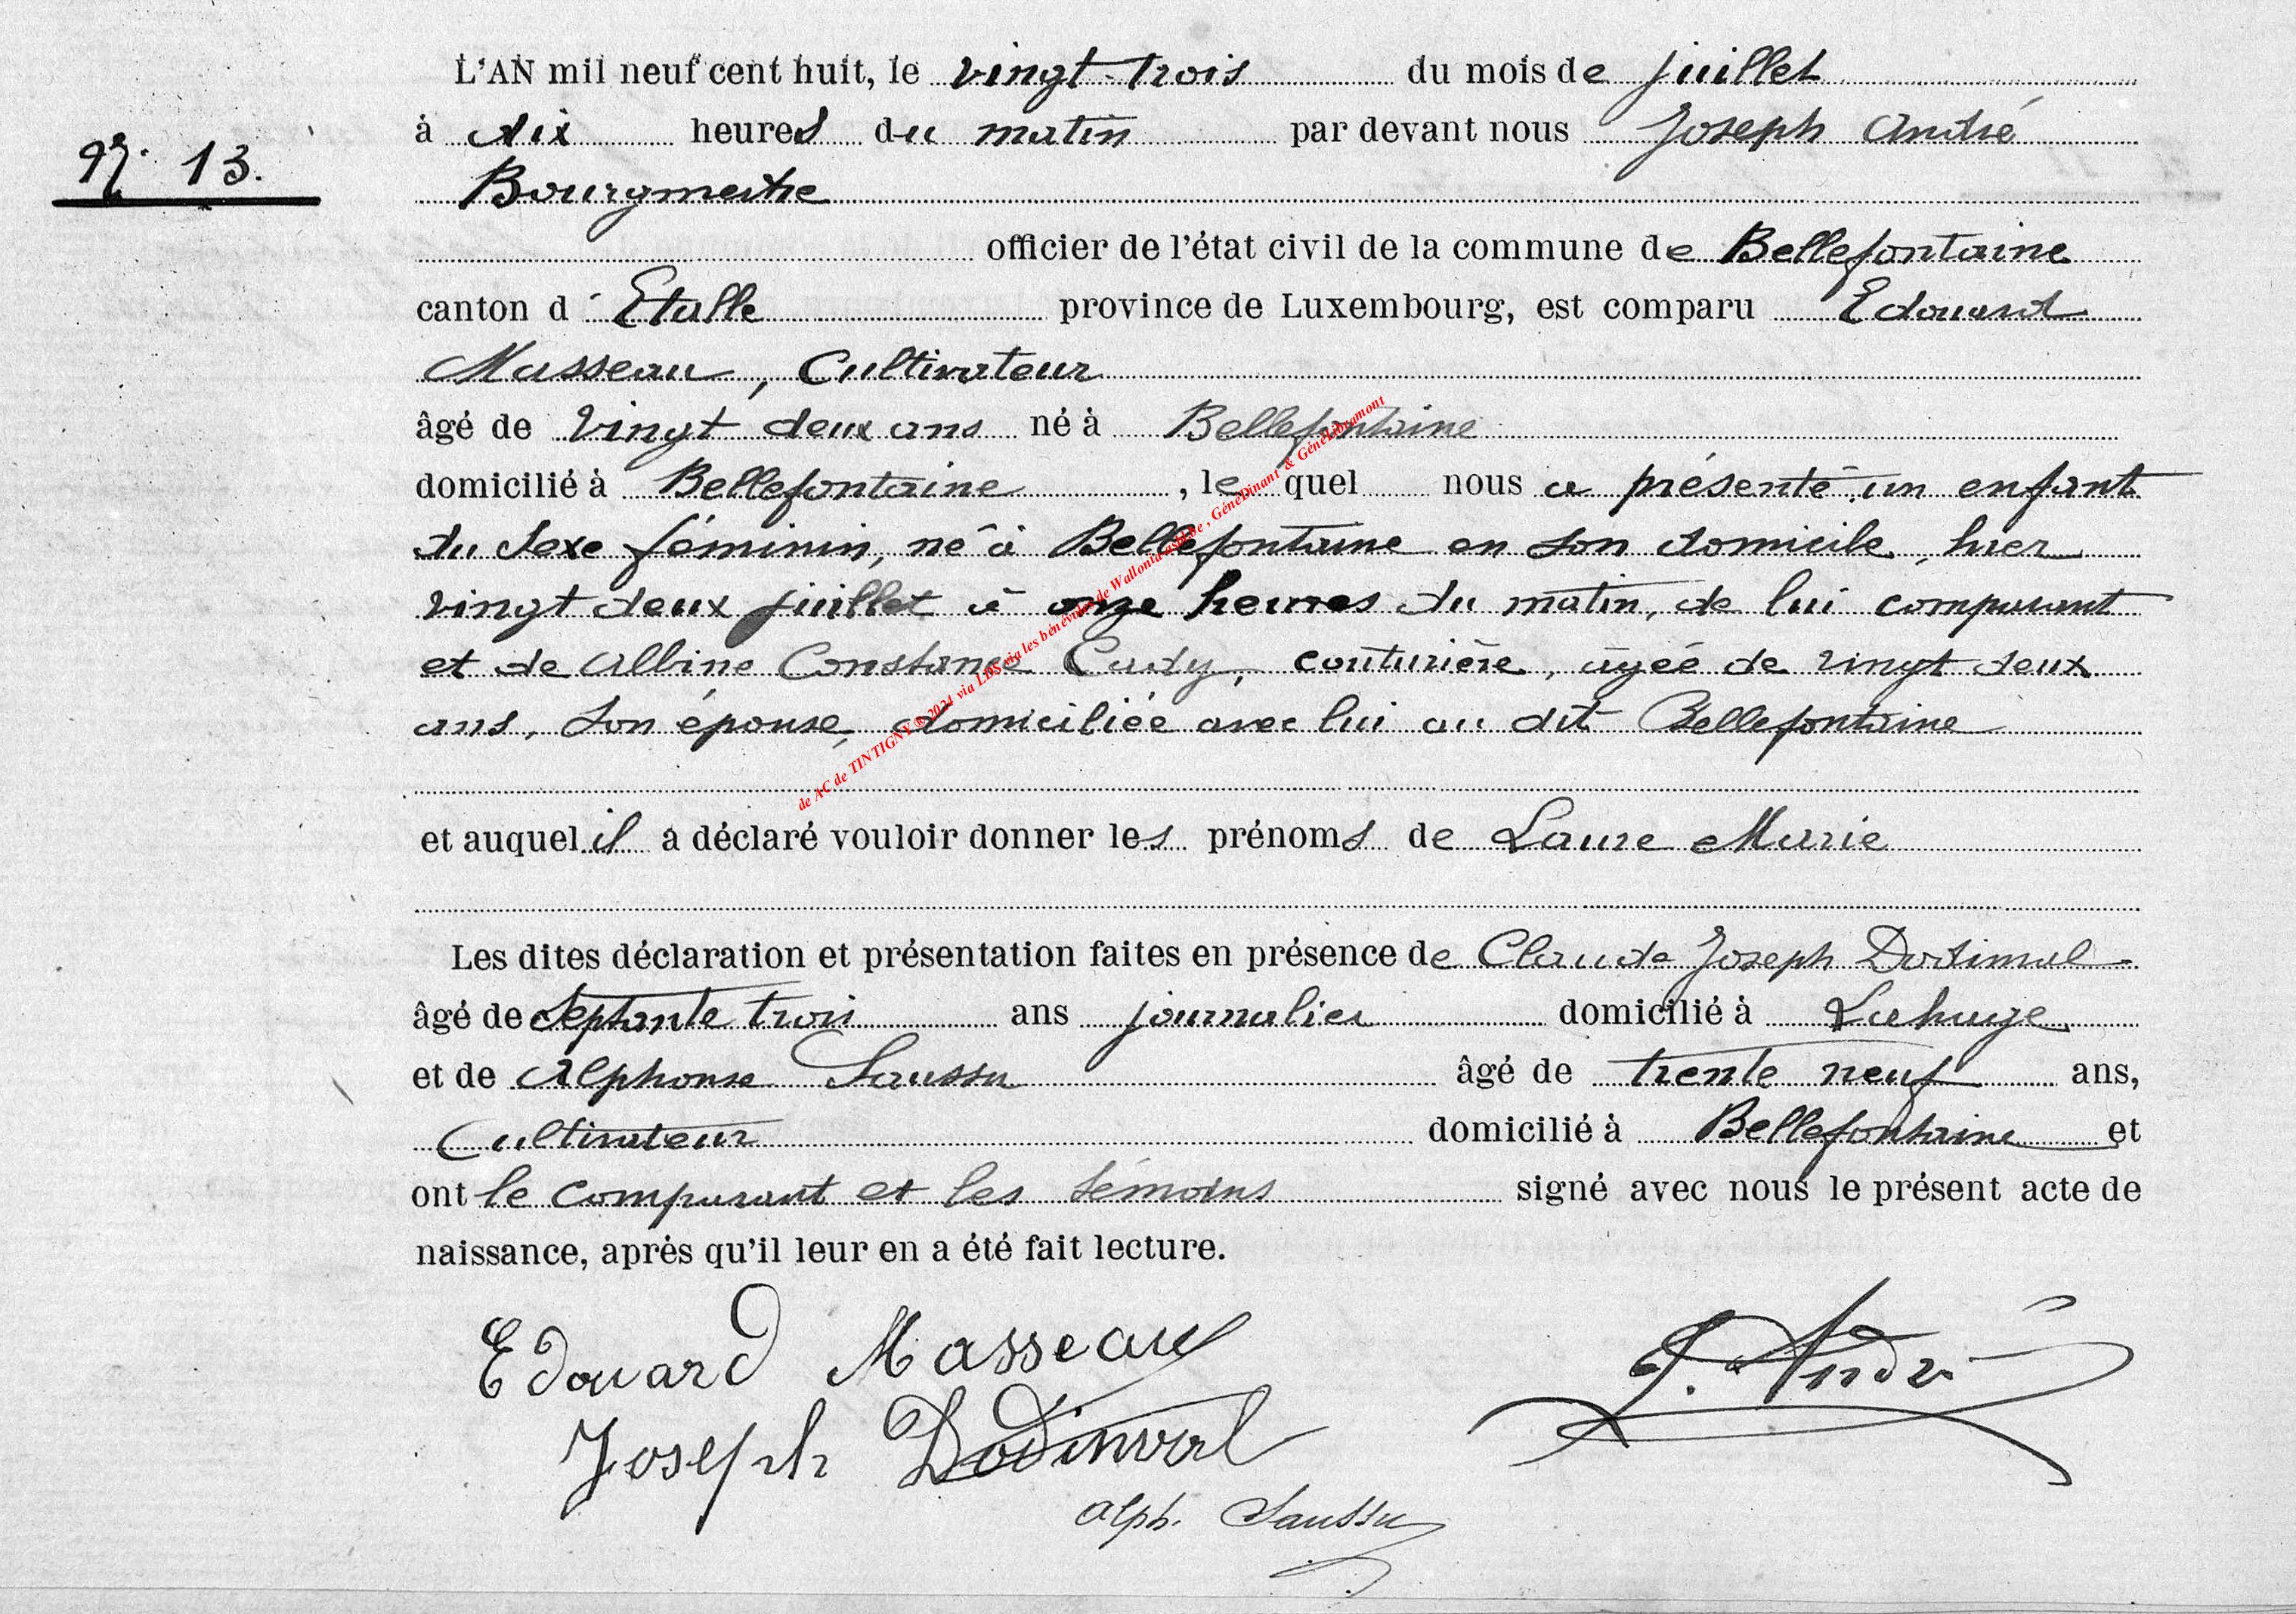 L'AN mil neuf cent huit, le vingt-trois du mois de juillet
à dix heures du matin par devant nous Joseph André
N° 13.
Bourgmestre
officier de l'état civil de la commune de Bellefontaine
canton d'Etalle province de Luxembourg, est comparu Edouard
Masseau, Cultivateur
âgé de vingt deux ans né à Bellefontaine
domicilié à Bellefontaine, lequel nous a présenté un enfant
du sexe féminin, né à Bellefontaine en son domicile, hier
vingt deux juillet à onze heures du matin, de lui comparant
et de Albine Constance Cady, couturière, âgée de vingt deux
ans, son épouse, domiciliée avec lui au dit Bellefontaine
de AC de TINTIGNY ® 2024 via LDS via les bénévoles de Wallonia asbl de, GénéDinant & GénéLibramont
et auquel il a déclaré vouloir donner les prénoms de Laure Marie
Les dites déclaration et présentation faites en présence de Claude Joseph Dodinval
âgé de septante trois ans journalier domicilié à Lahage
et de Alphonse Saussu âgé de trente neuf ans,
Cultivateur domicilié à Bellefontaine et
ont le comparant et les témoins signé avec nous le présent acte de
naissance, après qu'il leur en a été fait lecture.
Edouard Masseau
J. André
Joseph Dodinval
Alph. Saussu